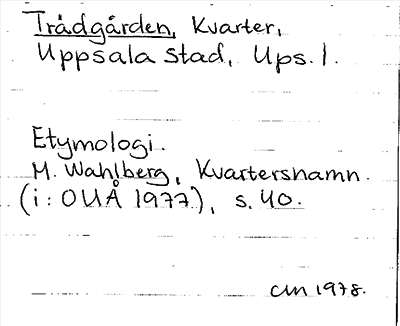 Trädgården, Kvarter,
Uppsala stad, Ups. l.
Etymologi.
M. Wahlberg, Kvartersnamn.
(i: OUÅ 1977), s. 40.
CM 1978.